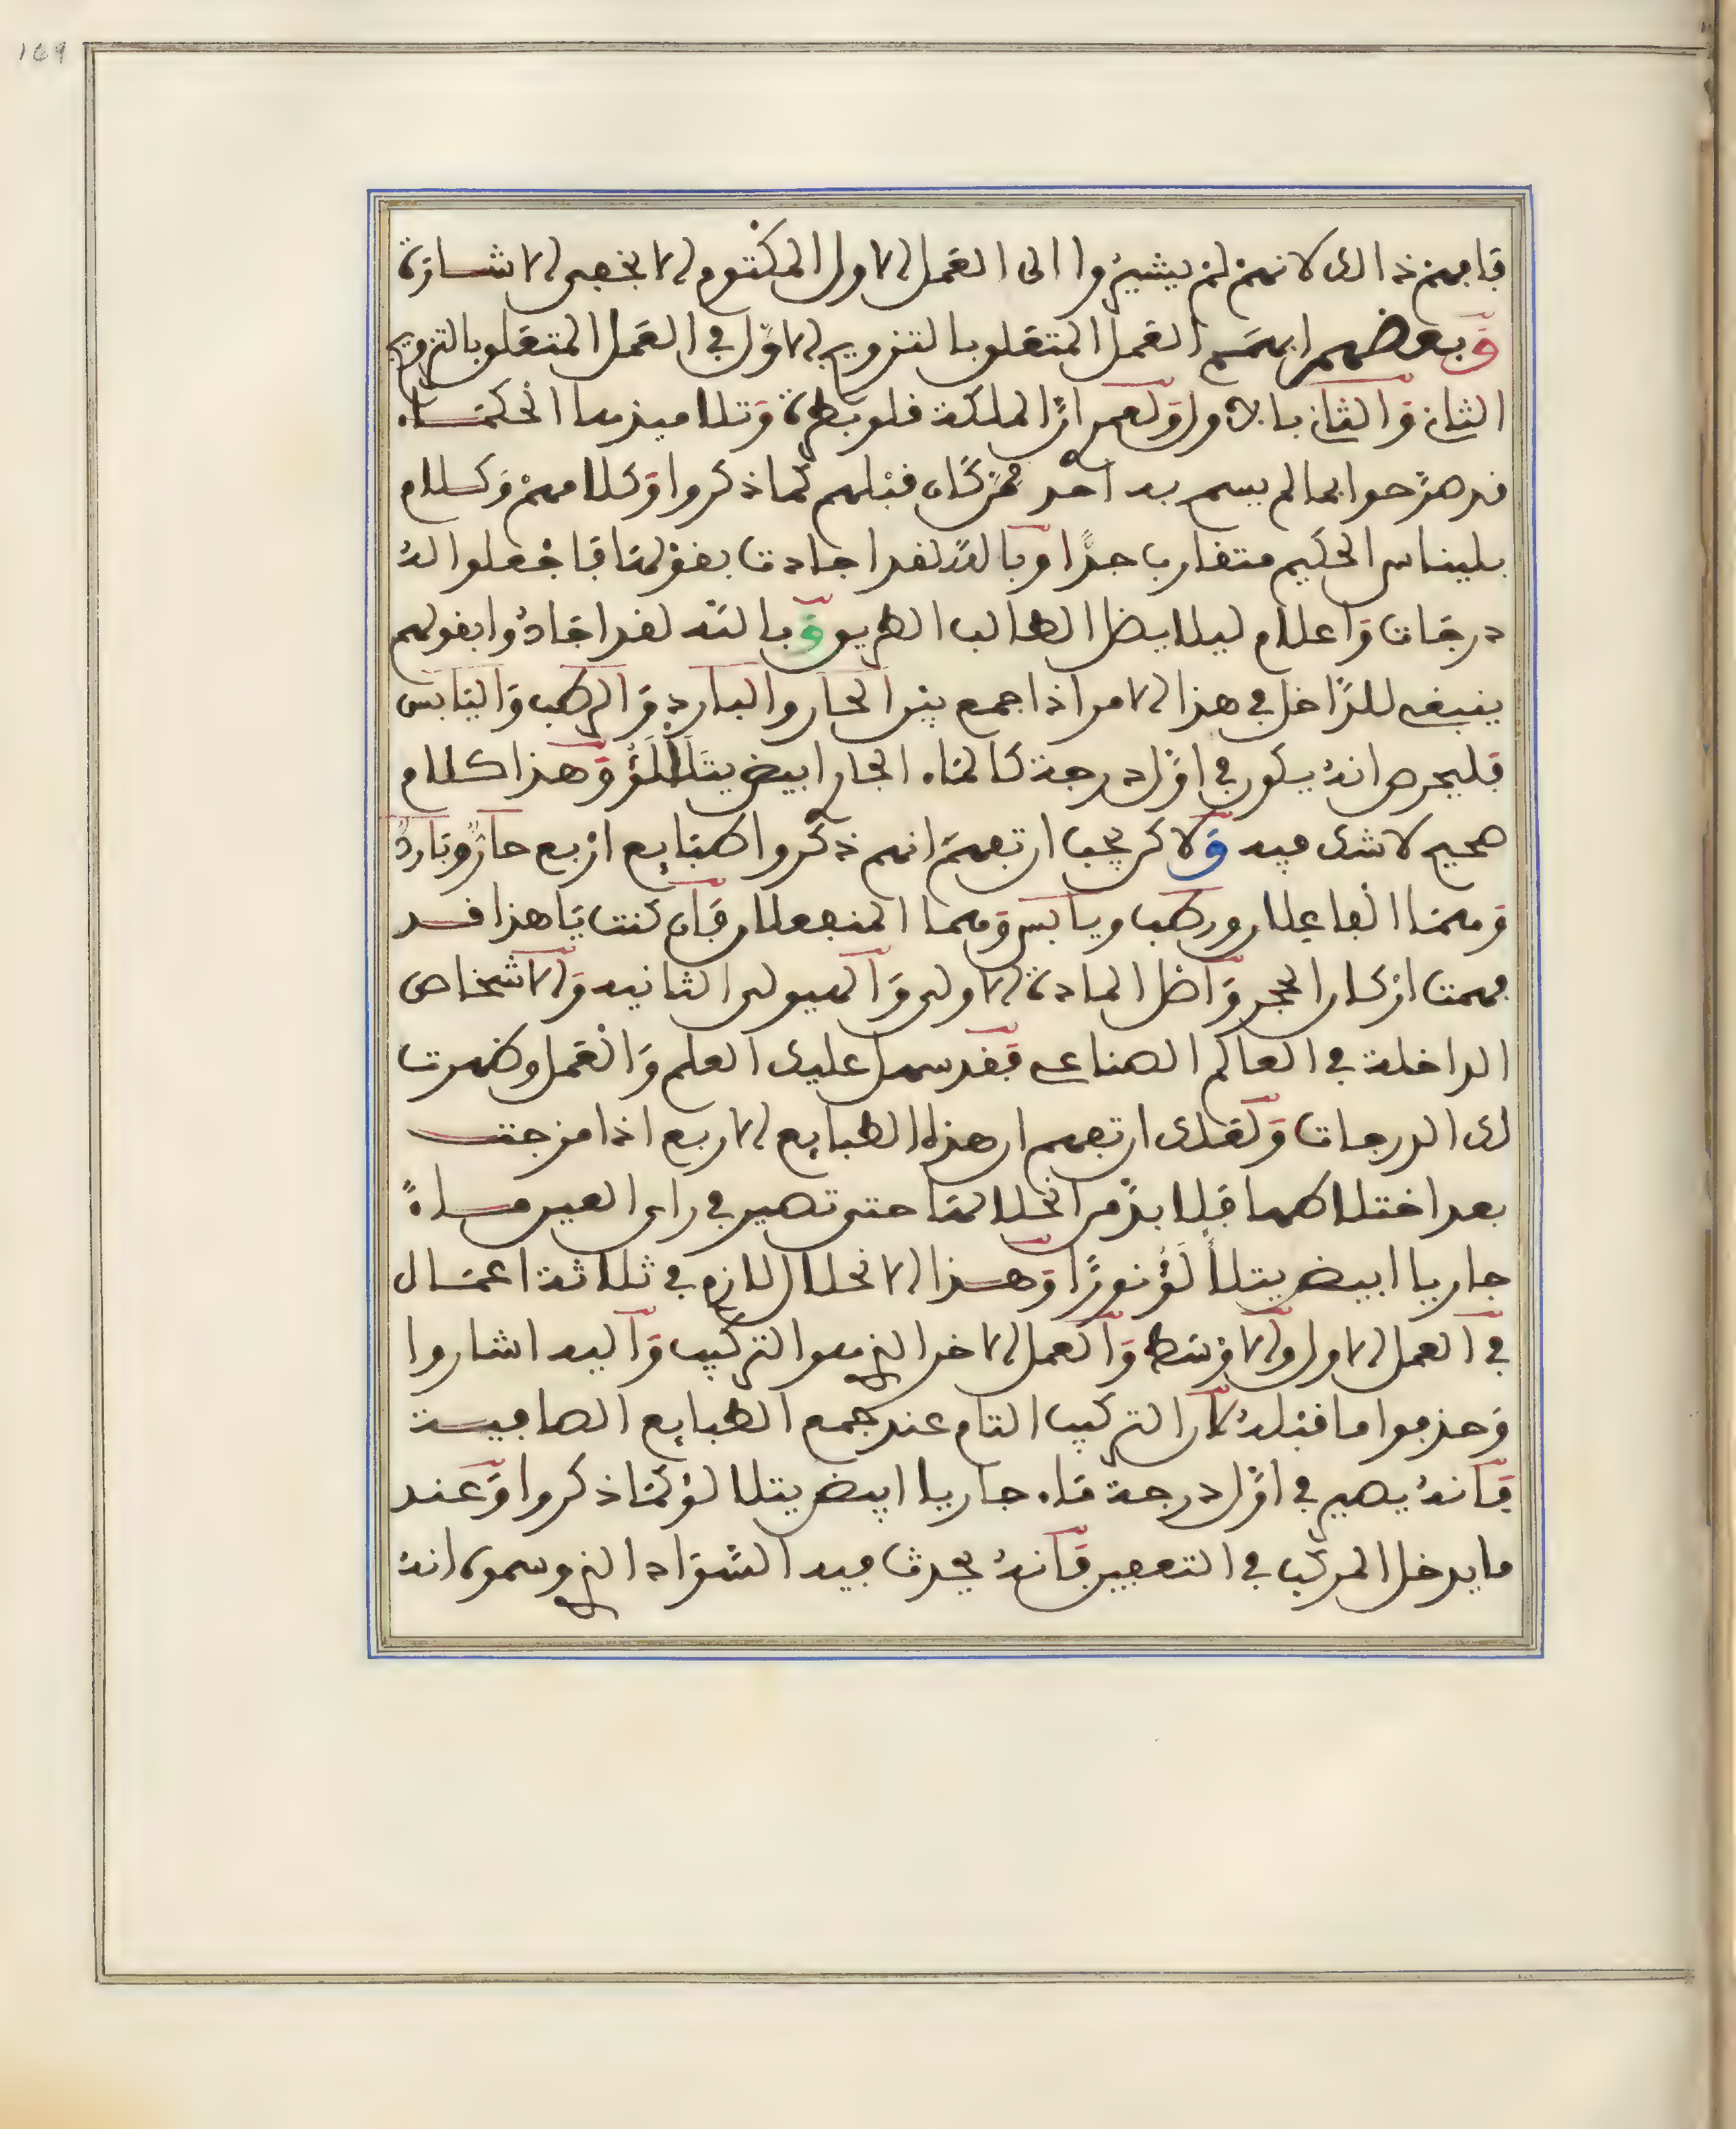 169
فافهم ذالك لانهم لم يشيروا الى العمل الاول المكتوم الا بخفي الاشارة
وبعضهم ابهم العمل المتعلق بالتزويج الاول في العمل المتعلق بالتزويج
الثاني والثاني بالاول ولعمري ان الملكة قلوبطرة وتلاميذها الحكماء
قد صرحوا بما لم يسمح به احد ممن كان قبلهم كما ذكروا وكلامهم وكلام
بليناس الحكيم متقارب جدا وبالله لقد اجادت بقولها فاجعلوا له
درجات واعلام ليلا يضل الطالب الطريق وبالله لقد اجادوا بقولهم
ينبغي للداخل في هذا الامر اذا جمع بين الحار والبارد والرطب واليابس
فليحرص انه يكون في اول درجة كالماء الجار ابيض يتلالؤ وهذا كلام
صحيح لا شك فيه ولاكن يجب ان تفهم انهم ذكروا طبايع اربع حار وبارد
وهما الفاعلان ورطب ويابس وهما المنفعلان فان كنت يا هذا قد
فهمت اركان الحجر واصل المادة الاولى والهيولى الثانيه والاشخاص
الداخلة في العالم الصناعي فقد سهل عليك العلم والعمل وظهرت
لك الدرجات ولعلك ان تفهم ان هذه الطبايع الاربع اذا مزجت
بعد اختلاطها فلا بد من انحلالها حتى تصير في راي العين ماءً
جاريا ابيض يتلألؤ نورا وهذا الانحلال اللازم في ثلاثة اعمال
في العمل الاول والاوسط والعمل الاخر الذي هو التركيب واليه اشاروا
وحذفوا ما قبله لان التركيب التام عند جمع الطبايع الصافية
فانه يصير في اول درجة ماء جاريا ابيض يتلالؤ كما ذكروا وعند
ما يدخل المركب في التعفين فانه يحدث فيه السواد الذي وسموه انه